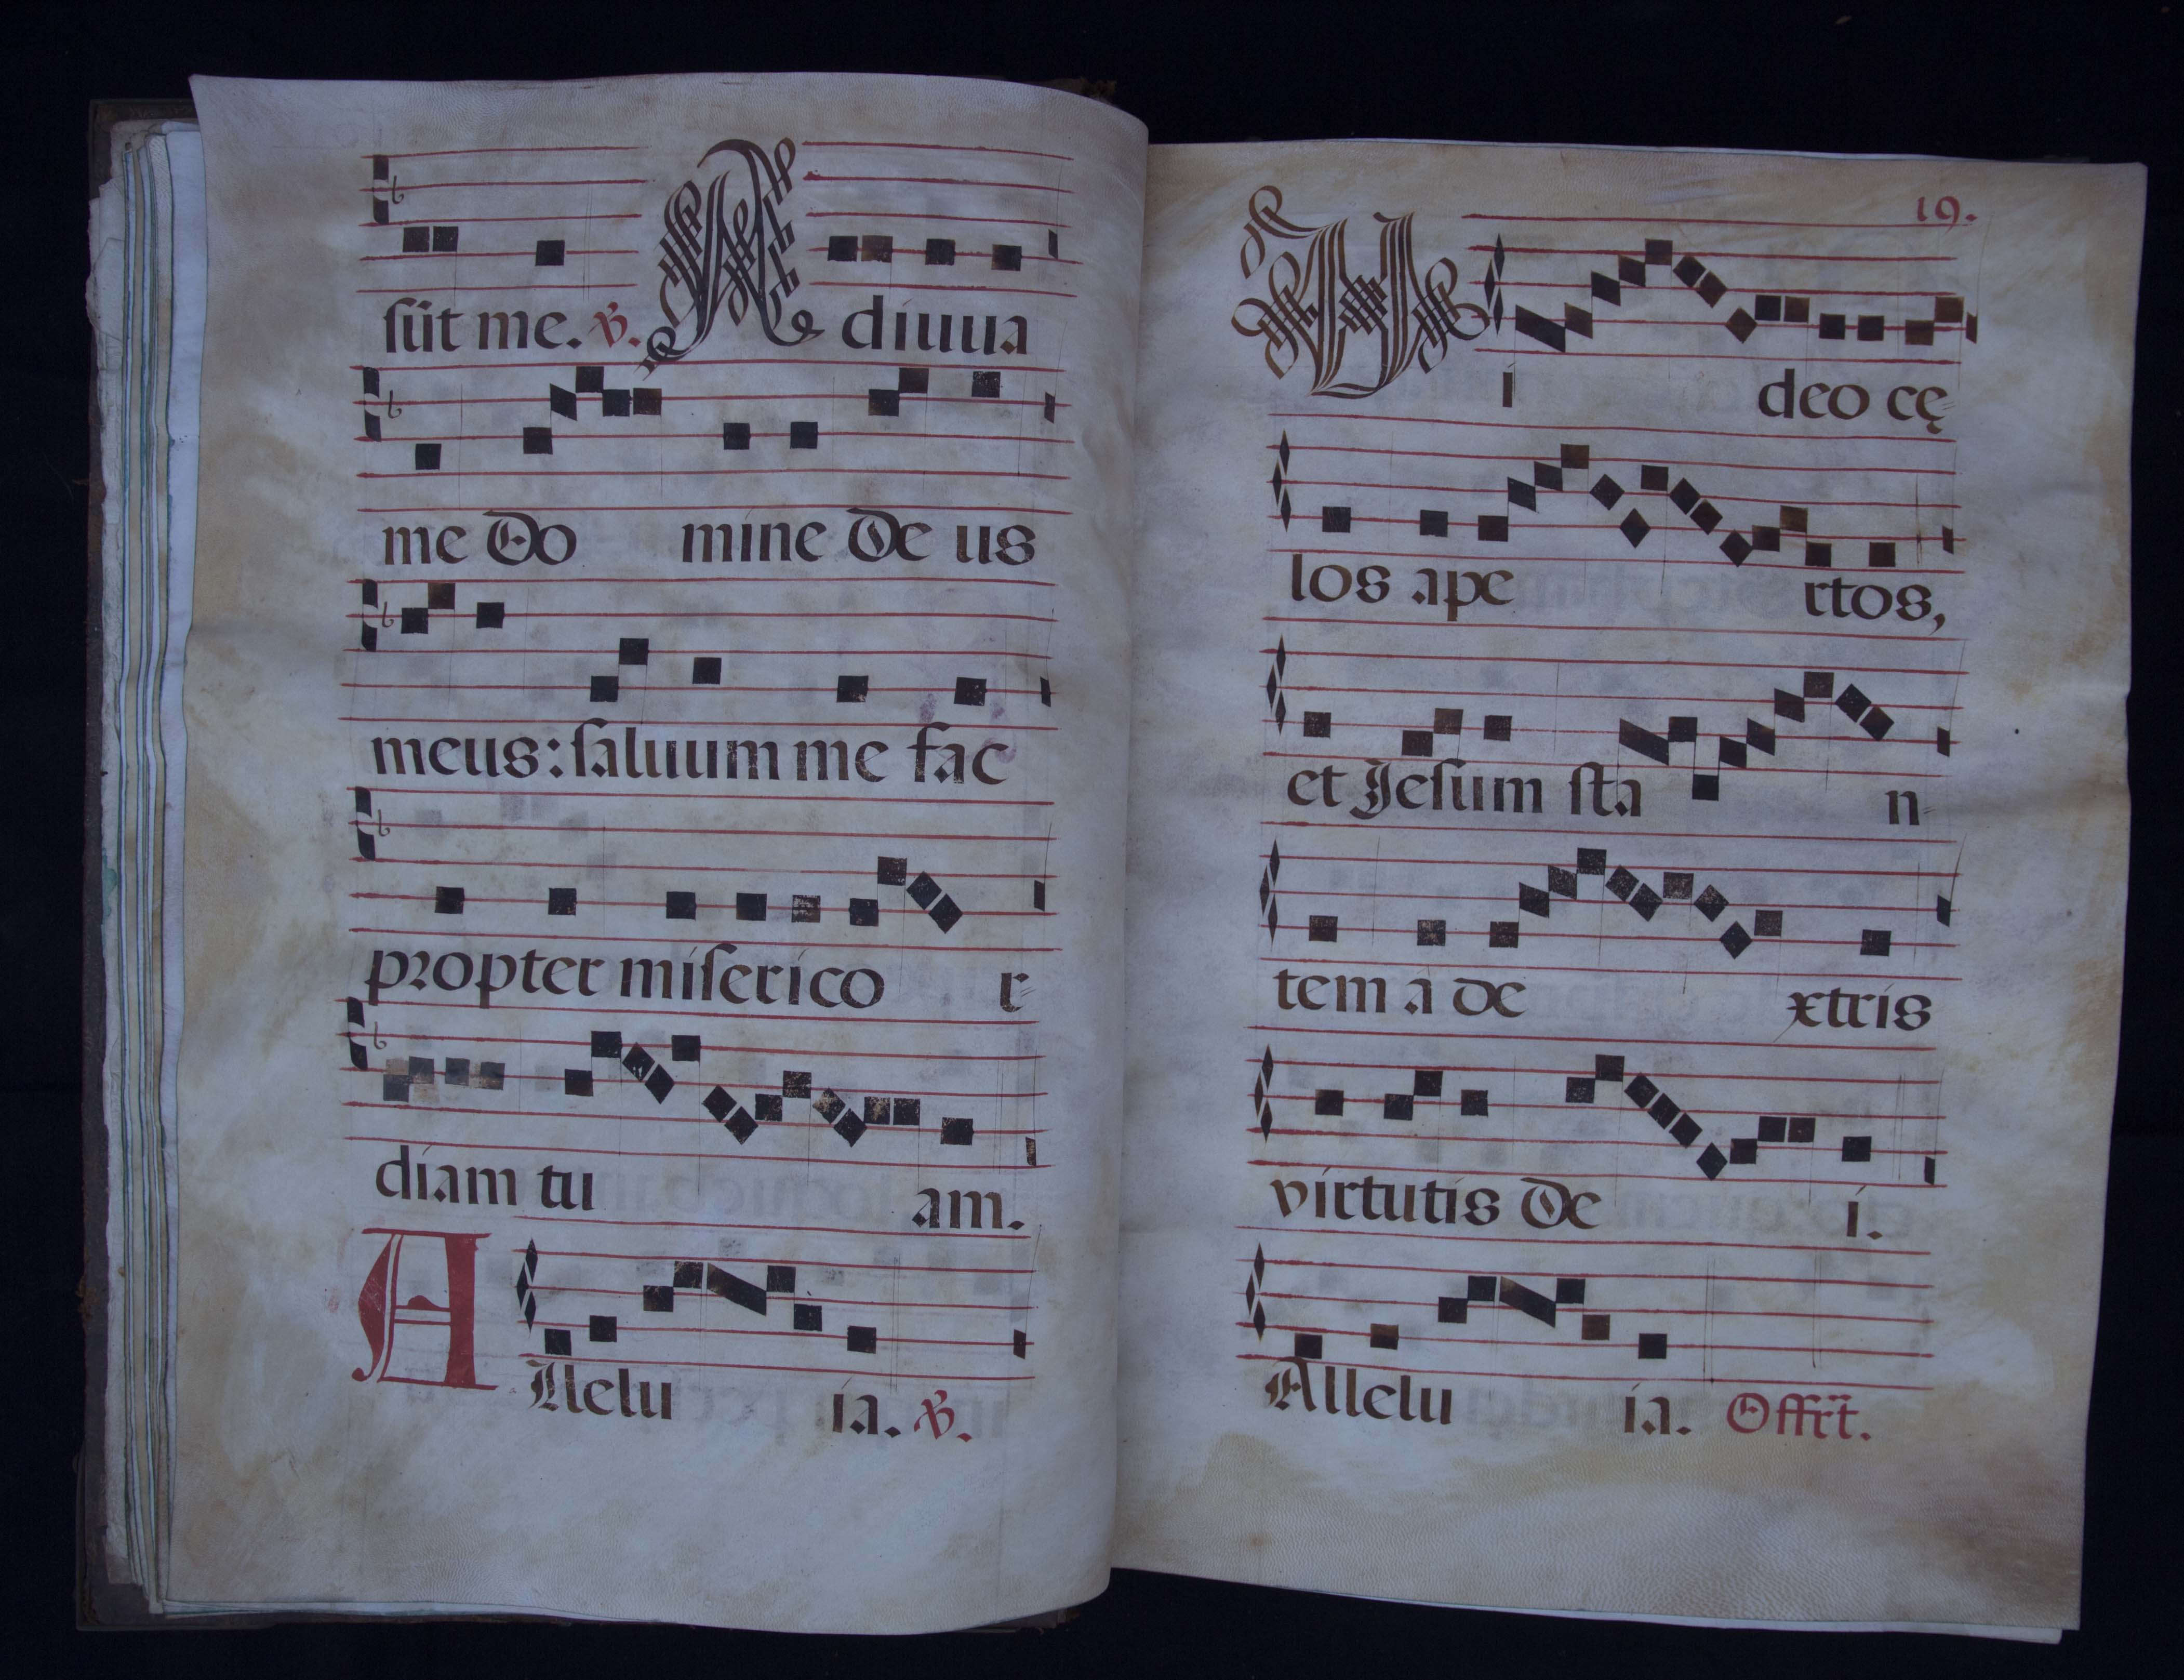 ſūt me. ℣. Adiuua
me Do mine De us
meus: ſaluum me fac
propter miſerico r-
diam tu am.
Allelu ia. ℣.
19.
Vi deo cę-
los ape rtos,
et Jeſum ſta n-
tem á de xtris
virtutis De i.
Allelu ia. Offrt.